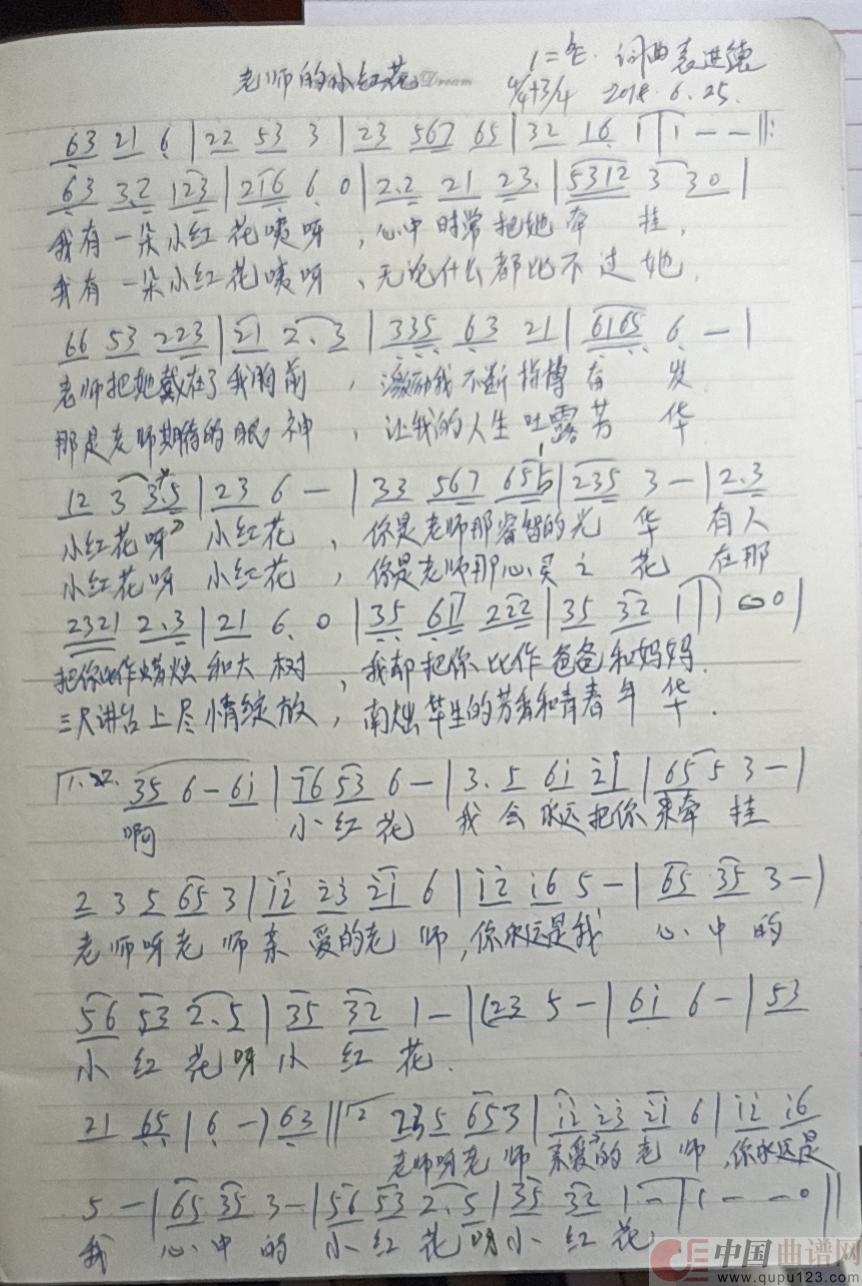 老师的小红花 Dream
1=bE. 词曲袁进德
4/4+3/4 2018.6.25.
63 21 6 | 22 53 3 | 23 567 65 | 32 16 1 | 1 - - ‖:
63 3.2 123 | 216 6 0 | 2.2 21 23. | 5312 3 30 |
我有一朵小红花咦呀,心中时常把她牵挂,
我有一朵小红花咦呀、无论什么都比不过她.
66 53 223 | 21 2.3 | 335 63 21 | 6165 6. - |
老师把她戴在了我胸前,激励我不断指博奋发.
那是老师期待的眼神,让我的人生吐露芳华
12 3 3.5 | 23 6 - | 33 567 65 | 235 3 - | 2.3
小红花呀 小红花,你是老师那睿智的光华 有人
小红花呀 小红花,你是老师那心灵之花 在那
2321 2.3 | 21 6. 0 | 35 617 222 | 35 32 1 | 1 0 0 |
把你比作蜡烛和大树,我却把你比作爸爸和妈妈.
三尺讲台上尽情绽放,毕生的芳香和青春年华.
35 6 - 6i | i6 53 6 - | 3.5 6i 2i | 65 5 3 - |
啊 小红花 我会永远把你来牵挂
2 3 5 65 3 | i2 23 2i 6 | i2 i6 5 - | 65 35 3 - |
老师呀老师亲爱的老师,你永远是我 心中的
56 53 2.5 | 35 32 1 - | (23 5 - | 6i 6 - | 53
小红花呀小红花.
21 65 | 6 -) 63 ‖ 2 235 653 | i2 23 2i 6 | i2 i6
老师呀老师亲爱的老师,你永远是
5 - | 65 35 3 - | 56 53 2.5 | 35 32 1 - | 1 - - 0 ‖
我 心中的小红花呀小红花.
中国曲谱网
www.qupu123.com